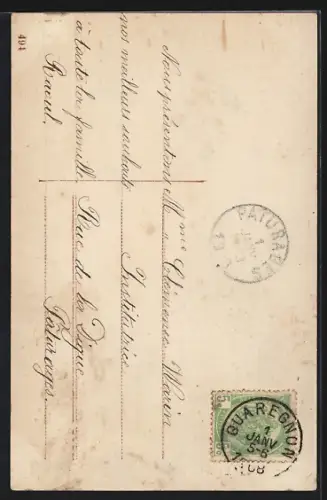 494
Nous présentons
nos meilleurs souhaits
à toute la famille
Raoul.
Mme Clémence Warin
Institutrice
Rue de la Digue
Pâturages
PATURAGES
1
JANV
QUAREGNON
1
JANV
1908